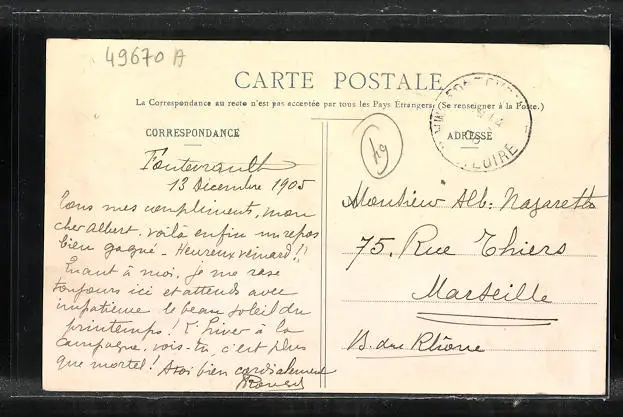 49670 A
CARTE POSTALE
La Correspondance au recto n'est pas acceptée par tous les Pays Étrangers (Se renseigner à la Poste.)
CORRESPONDANCE
ADRESSE
49
LOIRE
Fontevrault
13 Décembre 1905
Tous mes compliments, mon
cher Albert, voilà enfin un repos
bien gagné - Heureux veinard!!
Quant à moi, je me rase
toujours ici et attends avec
impatience le beau soleil du
printemps! L'hiver à la
campagne, vois-tu, c'est plus
que mortel! A toi bien cordialement
Monsieur Alb: Nazarette
75, Rue Thiers
Marseille
B. du Rhône